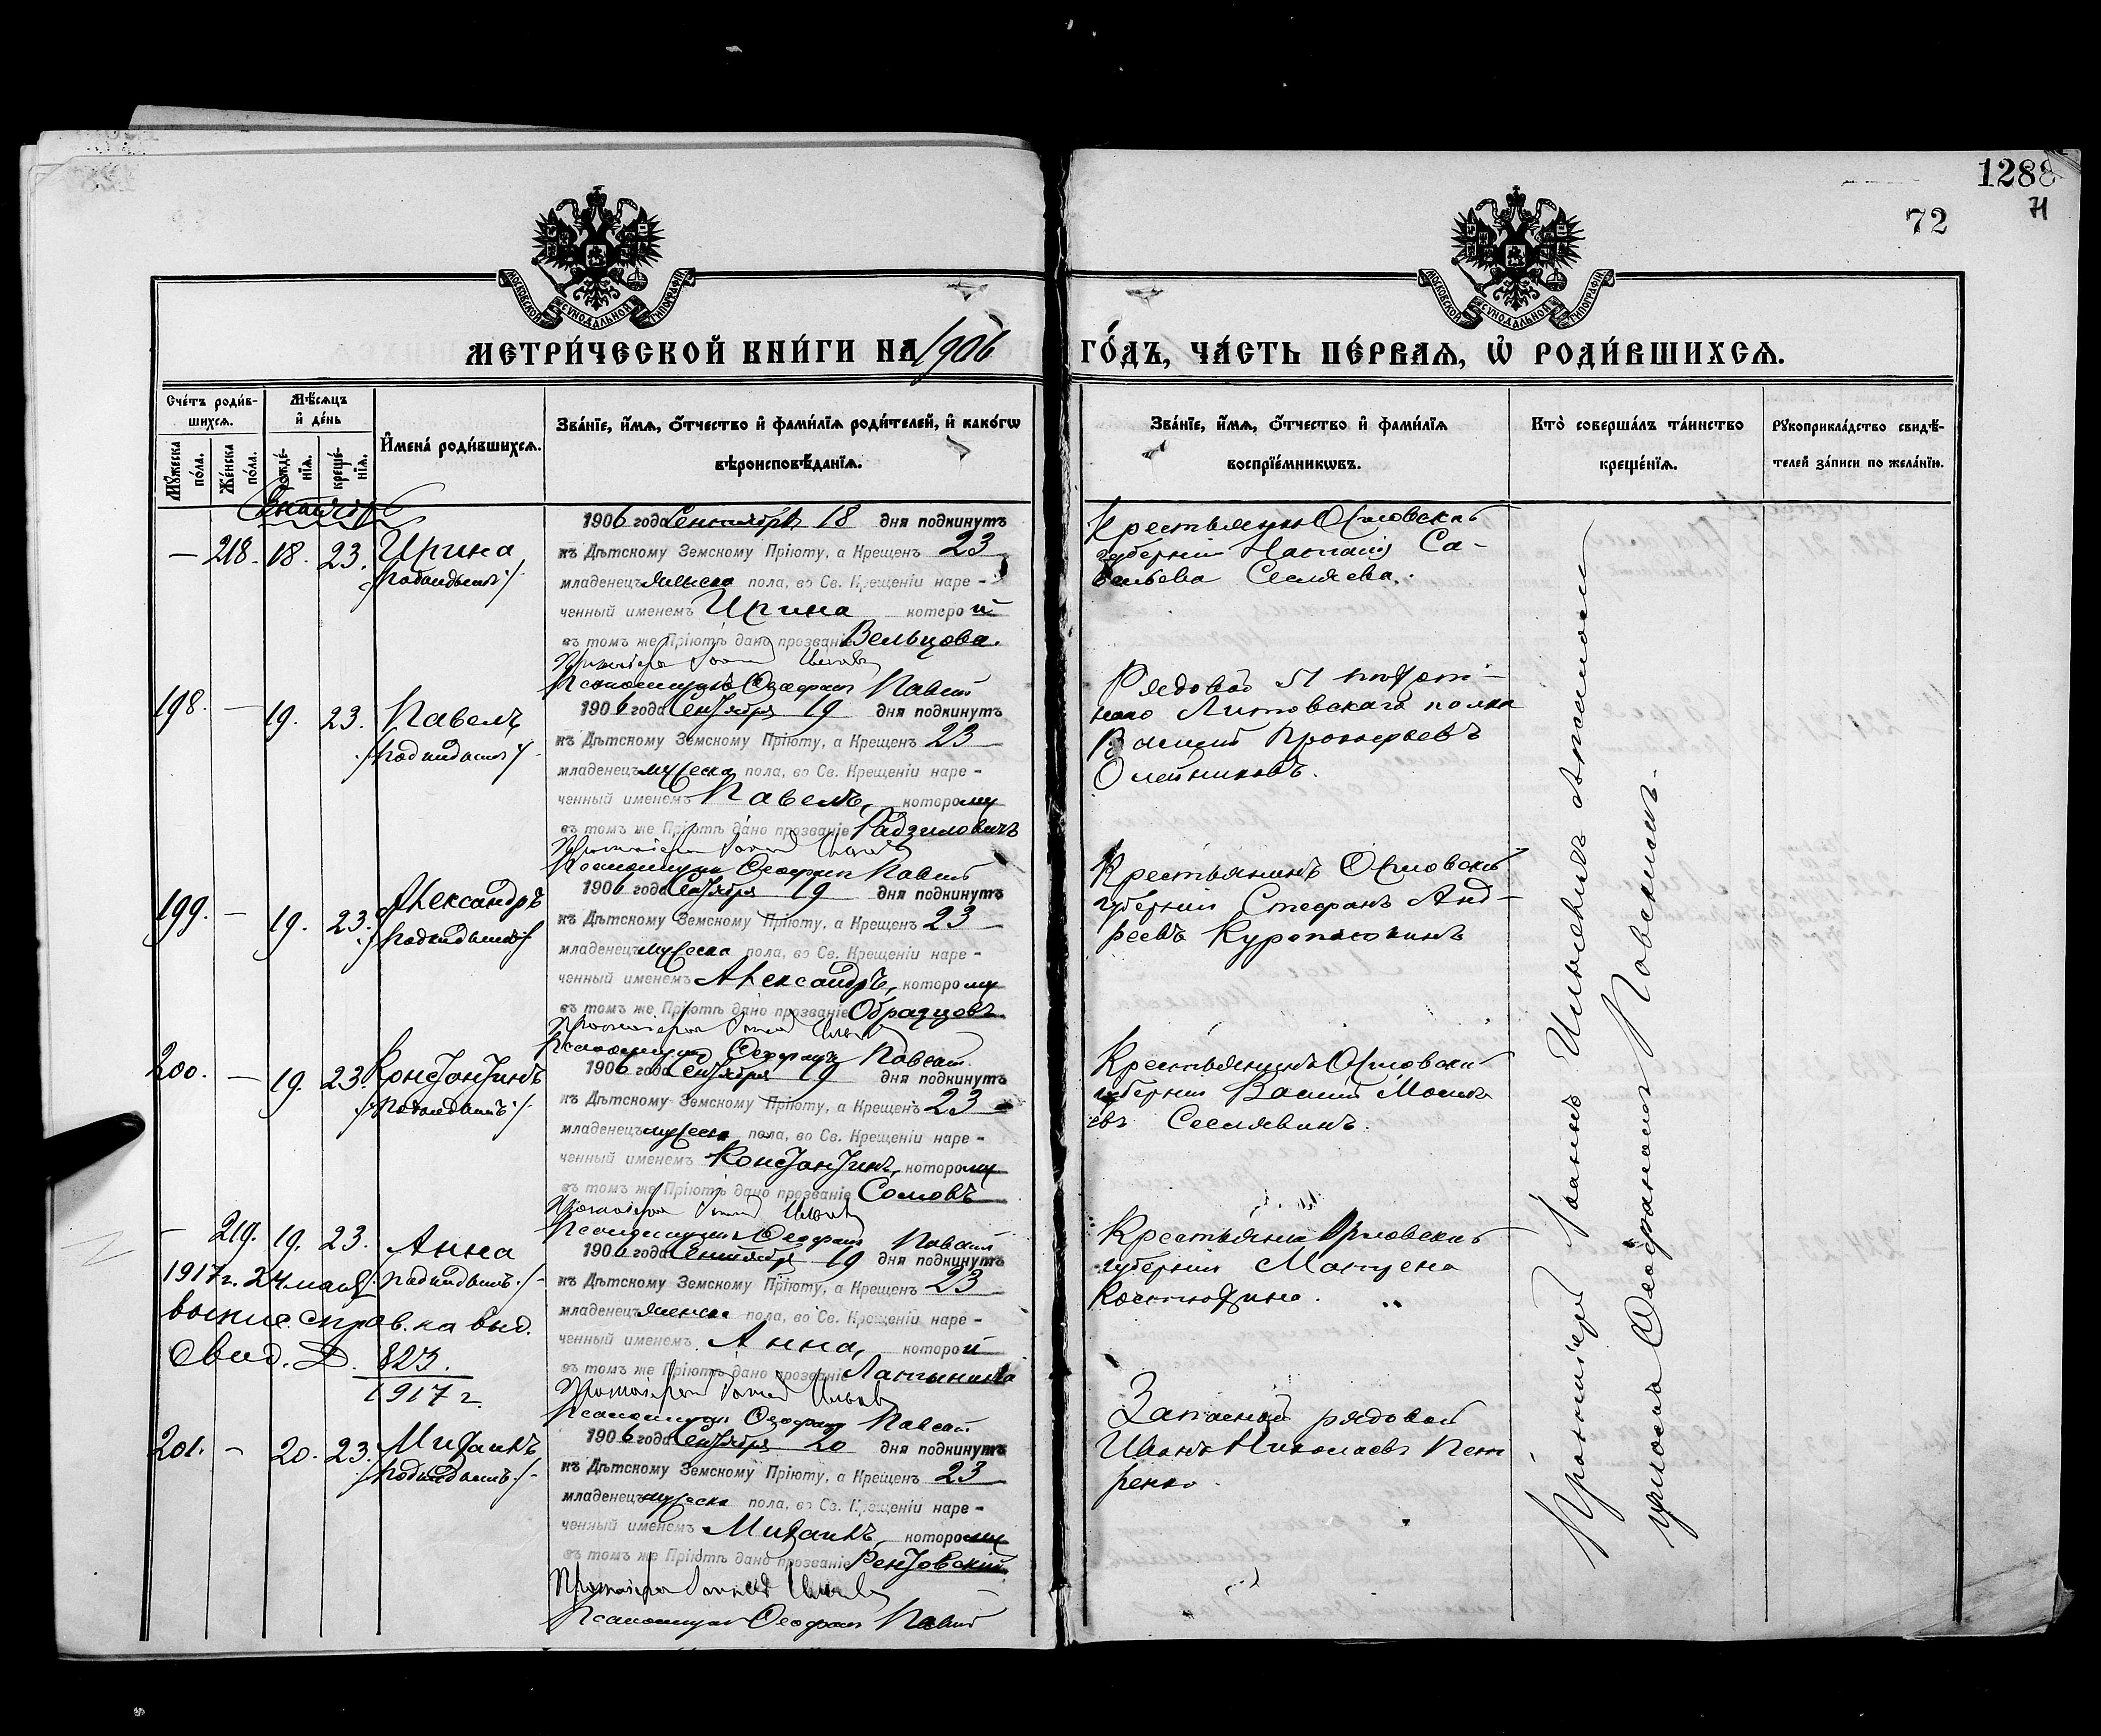 1288
71
72
МОСКОВСКОЙ СѴНОДАЛЬНОЙ ТИПОГРАФІИ
МОСКОВСКОЙ СѴНОДАЛЬНОЙ ТИПОГРАФІИ
МЕТРИ́ЧЕСКОЙ КНИ́ГИ НА 1906 ГО́ДЪ, ЧА́СТЬ ПЕ́РВАѦ, Ѡ҆ РОДИ́ВШИХСѦ.
Сче́тъ роди́в-
шихсѧ.
Мꙋ́жеска по́ла.
Же́нска по́ла.
Мѣ́сѧцъ
и҆ де́нь
рожде́-нїѧ.
креще́-нїѧ.
И҆мена̀ роди́вшихсѧ.
Зва́нїе, и҆́мѧ, ѻ҆́тчество и҆ фами́лїѧ роди́телей, и҆ како́гѡ
вѣроисповѣ́данїѧ.
Зва́нїе, и҆́мѧ, ѻ҆́тчество и҆ фами́лїѧ
воспрїе́мникѡвъ.
Кто̀ соверша́лъ та́инство
креще́нїѧ.
Рꙋкоприкла́дство свидѣ́-
телей за́писи по жела́нїю.
Сентябрь
— 218. 18. 23. Ирина
/:подкидышъ:/
1906 года Сентября 18 дня подкинутъ
къ Дѣтскому Земскому Пріюту, а Крещенъ 23
младенецъ женска пола, во Св. Крещеніи наре-
ченный именемъ Ирина которой
въ томъ же Пріютѣ дано прозваніе Вельцова.
Протоіерей Іоаннъ Ильинъ
Псаломщикъ Ѳеофанъ
Крестьянка Орловской
губерніи Наталія Са-
вельева
198. — 19. 23. Павелъ
/:подкидышъ:/
1906 года Сентября 19 дня подкинутъ
къ Дѣтскому Земскому Пріюту, а Крещенъ 23
младенецъ мужеска пола, во Св. Крещеніи наре-
ченный именемъ Павелъ, которому
въ томъ же Пріютѣ дано прозваніе Радзиловичъ
Протоіерей Іоаннъ Ильинъ
Псаломщикъ Ѳеофанъ
Рядовой 51 пѣхот-
наго Литовскаго полка
Василій Прокофьевъ
Олейниковъ.
199. — 19. 23. Александръ
/:подкидышъ:/
1906 года Сентября 19 дня подкинутъ
къ Дѣтскому Земскому Пріюту, а Крещенъ 23
младенецъ мужеска пола, во Св. Крещеніи наре-
ченный именемъ Александръ, которому
въ томъ же Пріютѣ дано прозваніе Образцовъ
Протоіерей Іоаннъ Ильинъ
Псаломщикъ Ѳеофанъ
Крестьянинъ Орловской
губерніи Стефанъ Анд-
реевъ
200. — 19. 23. Константинъ
/:подкидышъ:/
1906 года Сентября 19 дня подкинутъ
къ Дѣтскому Земскому Пріюту, а Крещенъ 23
младенецъ мужеска пола, во Св. Крещеніи наре-
ченный именемъ Константинъ, которому
въ томъ же Пріютѣ дано прозваніе Сомовъ
Протоіерей Іоаннъ Ильинъ
Псаломщикъ Ѳеофанъ
Крестьянинъ Орловской
губерніи Василій
— 219. 19. 23. Анна
/:подкидышъ:/
1917 г. 24 мая
справ. на выд.
Свид. Д. 823.
1917 г.
1906 года Сентября 19 дня подкинутъ
къ Дѣтскому Земскому Пріюту, а Крещенъ 23
младенецъ женска пола, во Св. Крещеніи наре-
ченный именемъ Анна, которой
въ томъ же Пріютѣ дано прозваніе Латынина
Протоіерей Іоаннъ Ильинъ
Псаломщикъ Ѳеофанъ
Крестьянка Орловской
губерніи Матрена
201. — 20. 23. Михаилъ
/:подкидышъ:/
1906 года Сентября 20 дня подкинутъ
къ Дѣтскому Земскому Пріюту, а Крещенъ 23
младенецъ мужеска пола, во Св. Крещеніи наре-
ченный именемъ Михаилъ, которому
въ томъ же Пріютѣ дано прозваніе Рентовскій
Протоіерей Іоаннъ Ильинъ
Псаломщикъ Ѳеофанъ
Запасный рядовой
Иванъ Николаевъ Пет
ренко.
Протоіерей Іоаннъ Ильинъ
Ѳеофаномъ